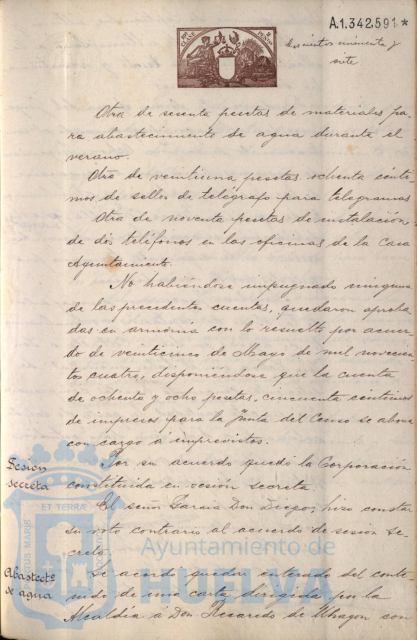 A.1.342.591*
siete
Otra de sesenta pesetas de materiales pa-
ra abastecimiento de agua durante el
verano.
Otra de veintiuna pesetas ochenta cénti-
mos de sellos de telégrafo para telegramas
Otra de noventa pesetas de instalación
de dos teléfonos en las oficinas de la Casa
Ayuntamiento.
No habiéndose impugnado ninguna
de las precedentes cuentas, quedaron aproba-
das en armonía con lo resuelto por acuer-
do de veinticinco de Mayo de mil novecien-
tos cuatro, disponiéndose que la cuenta
de ochenta y ocho pesetas, cincuenta céntimos
de impresos para la Junta del Censo se abone
con cargo a imprevistos.
Sesión
secreta
Por su acuerdo quedó la Corporación
constituida en sesión secreta.
El señor García Don Diego, hizo constar
su voto contrario al acuerdo de sesión se-
creta.
Abastecto
de agua
Se acordó quedar enterado del conte-
nido de una carta dirigida por la
Alcaldía á Don Ricardo de Uhagon con
ET TERRÆ
Ayuntamiento de
HUELVA